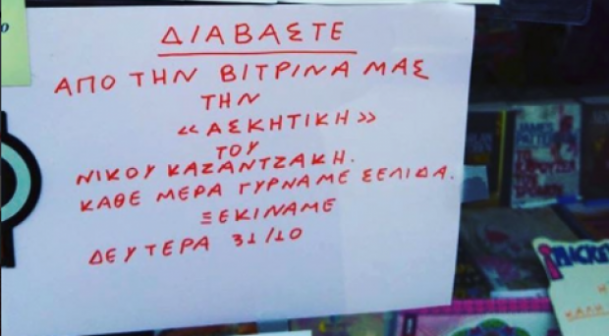 ΔΙΑΒΑΣΤΕ
ΑΠΟ ΤΗΝ ΒΙΤΡΙΝΑ ΜΑΣ
ΤΗΝ
«ΑΣΚΗΤΙΚΗ»
ΤΟΥ
ΝΙΚΟΥ ΚΑΖΑΝΤΖΑΚΗ.
ΚΑΘΕ ΜΕΡΑ ΓΥΡΝΑΜΕ ΣΕΛΙΔΑ.
ΞΕΚΙΝΑΜΕ
ΔΕΥΤΕΡΑ 31/10
JAMES